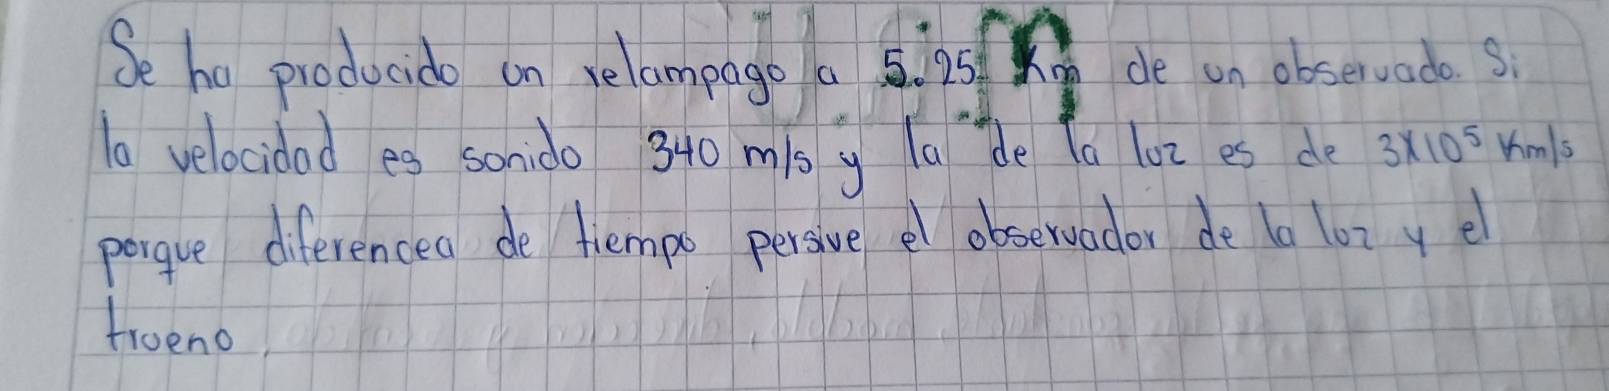 Se ha producido un relampago a 5.25 Km de un observado. Si
la velocidad es sonido 340 m/s y la de la luz es de 3x10⁵ Km/s
porque diferencea de tiempo persive el observador de la luz y el
trueno